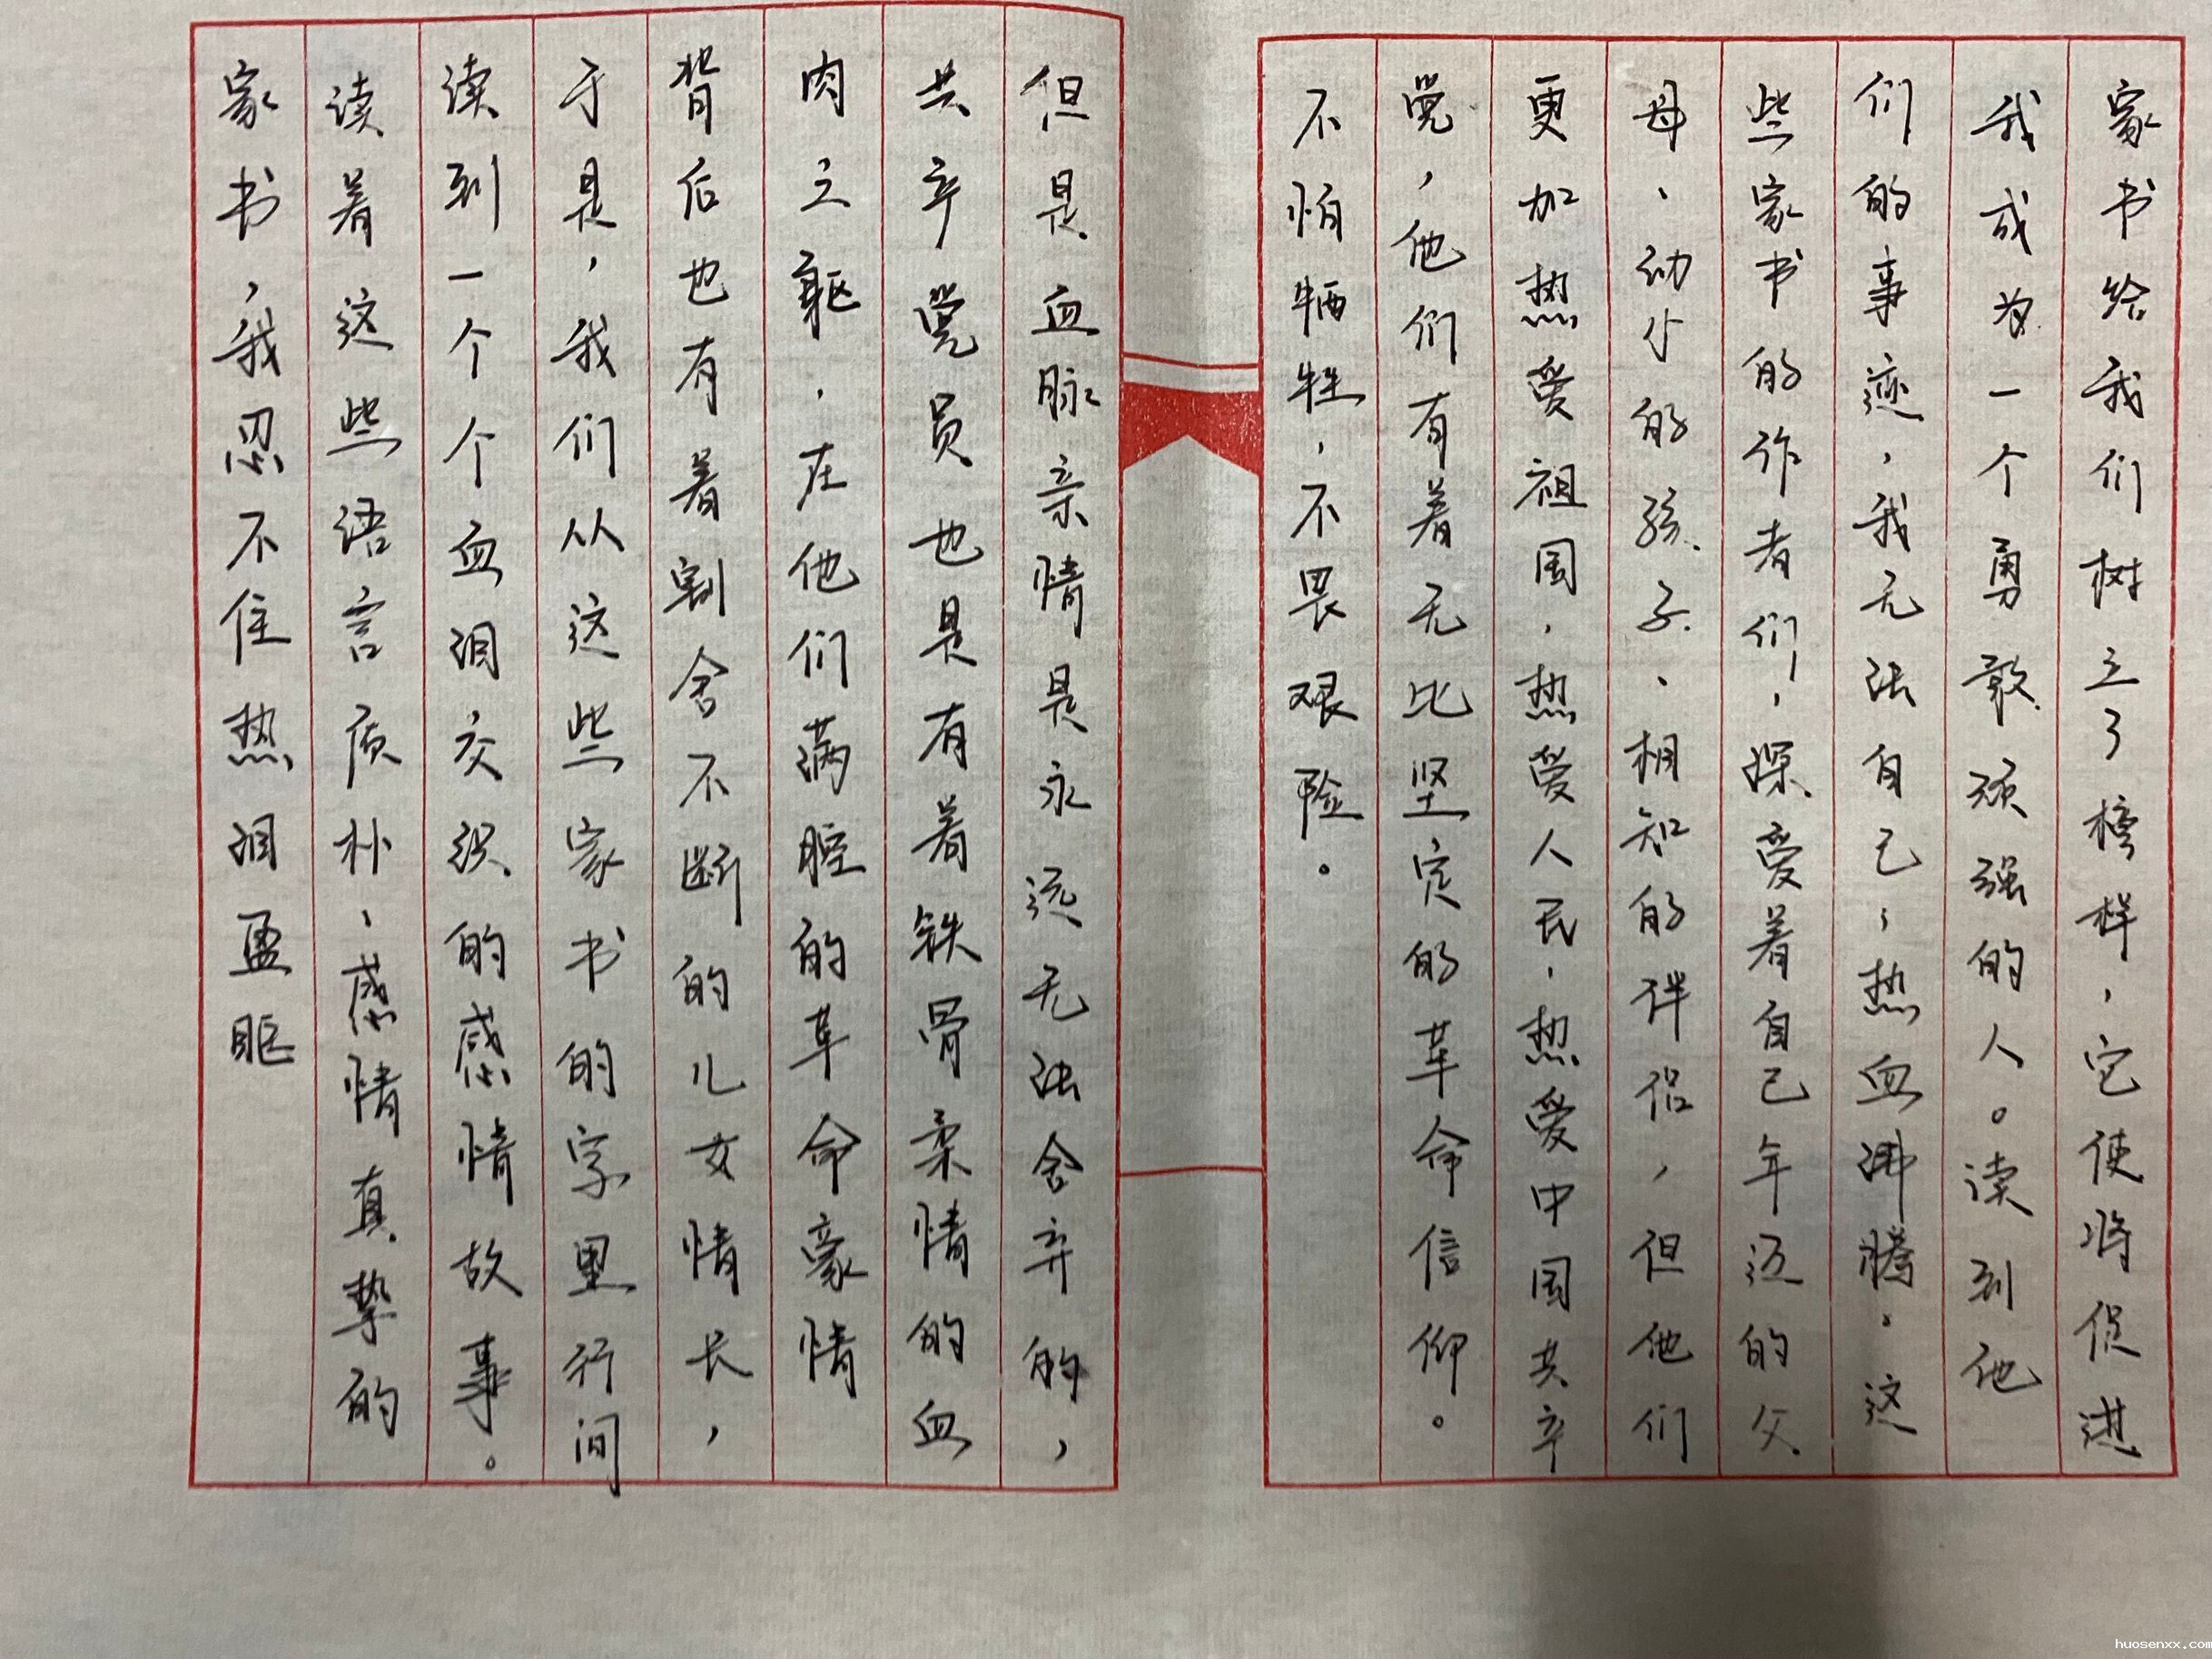 家书给我们树立了榜样，它使将促进
我成为一个勇敢顽强的人。读到他
们的事迹，我无法自已，热血沸腾。这
些家书的作者们，深爱着自己年迈的父
母、幼小的孩子、相知的伴侣，但他们
更加热爱祖国，热爱人民，热爱中国共产
党，他们有着无比坚定的革命信仰。
不怕牺牲，不畏艰险。
但是血脉亲情是永远无法舍弃的，
共产党员也是有着铁骨柔情的血
肉之躯，在他们满腔的革命豪情
背后也有着割舍不断的儿女情长，
于是，我们从这些家书的字里行间
读到一个个血泪交织的感情故事。
读着这些语言质朴、感情真挚的
家书，我忍不住热泪盈眶
huosenxx.com